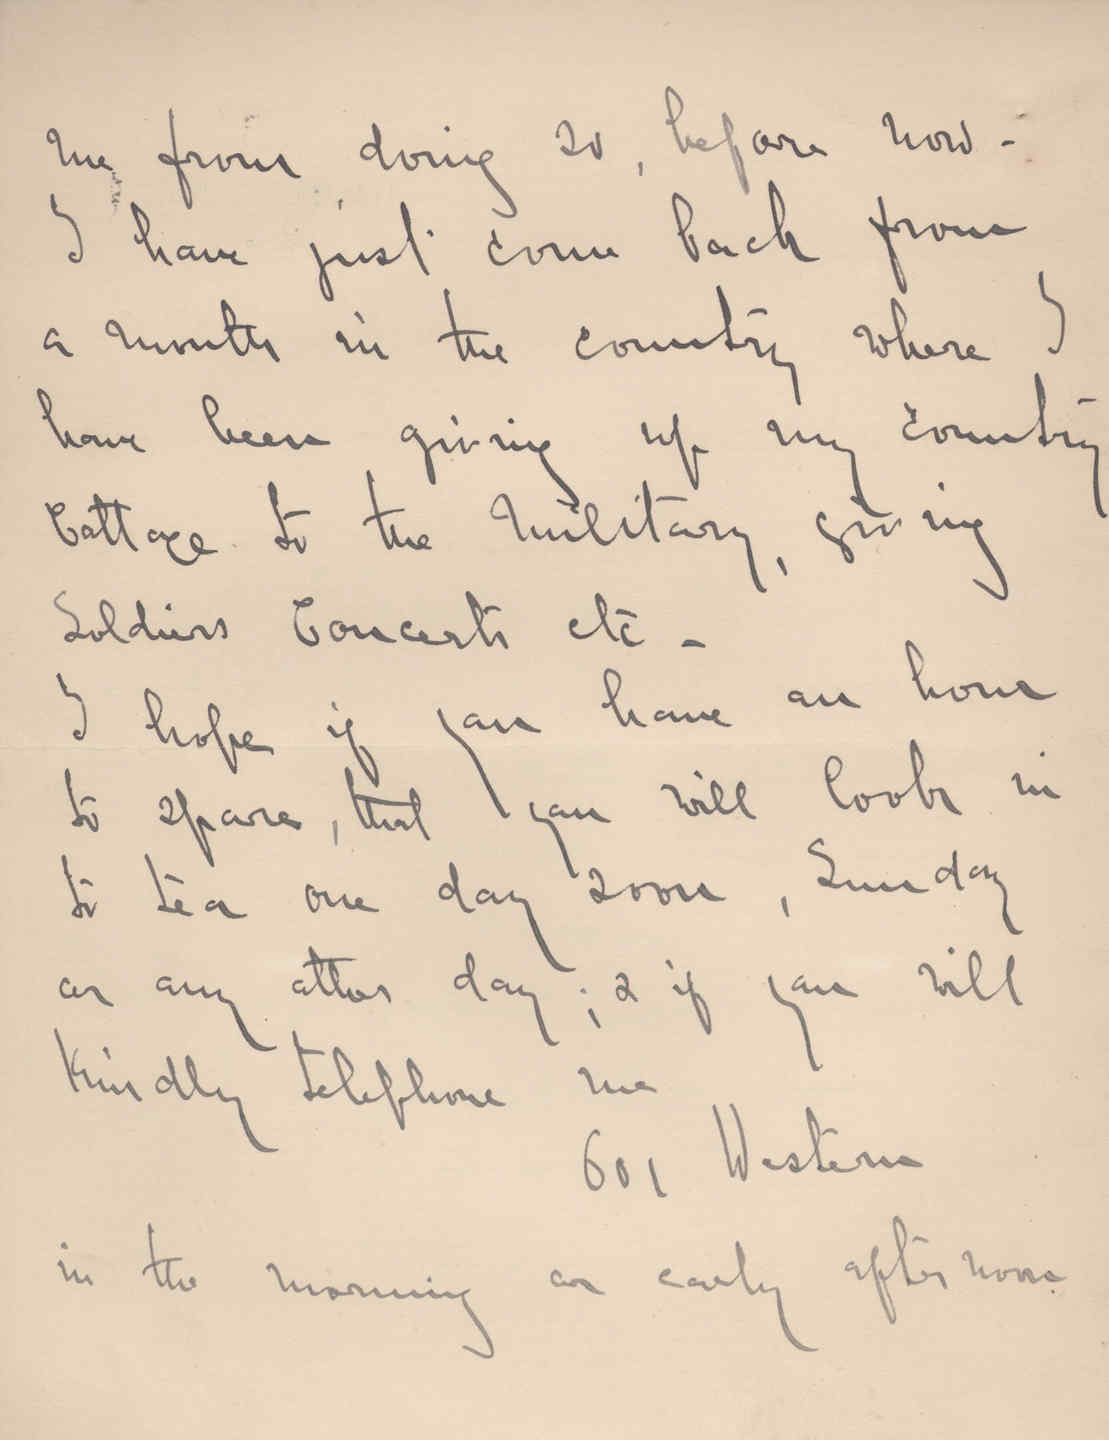 me from doing so, before now -
I have just come back from
a month in the country where I
have been giving up my country
Cottage to the Military, giving
Soldiers Concerts etc -
I hope if you have an hour
to spare, that you will look in
to tea one day soon, Sunday
or any other day; & if you will
Kindly telephone me
601 Western
in the morning or early afternoon